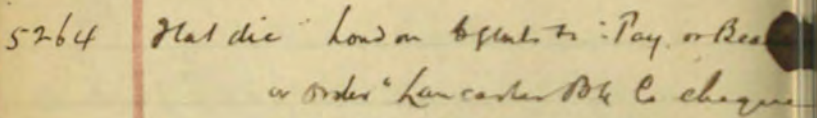 5264 Flat die "London Agents to "Pay or Bea
or order" Lancaster Bk Co cheque